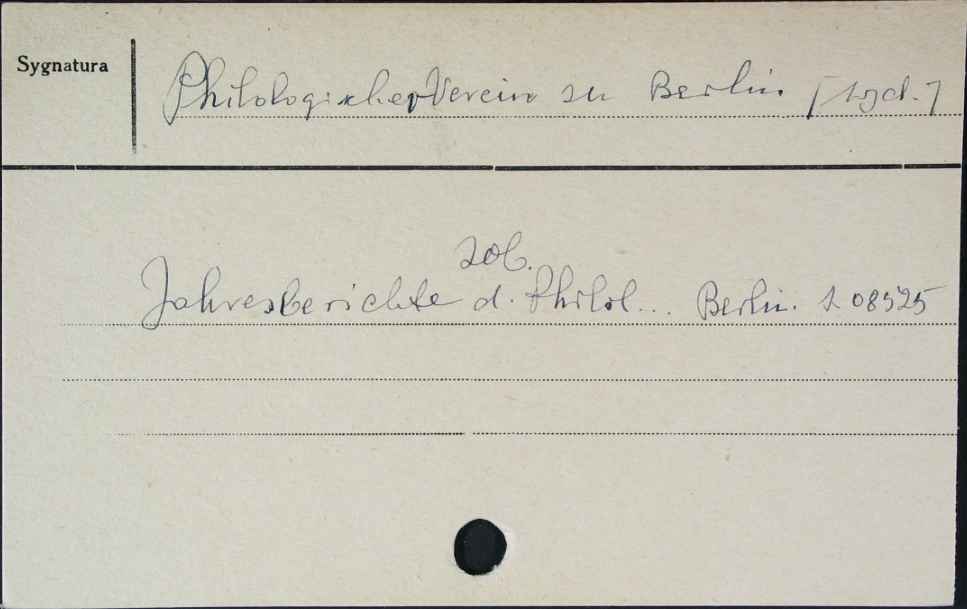 Sygnatura
Philologischer Verein zu Berlin [wyd.]
zob.
Jahresberichte d. Philol... Berlin.